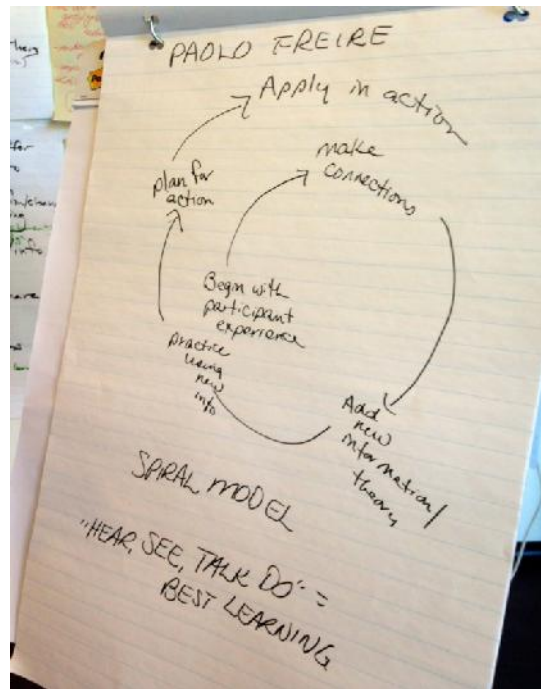 PAOLO FREIRE
Apply in action
make
connections
plan for
action
Begin with
participant
experience
practice
using
new
info
Add
new
information/
theory
SPIRAL MODEL
"HEAR, SEE, TALK DO" =
BEST LEARNING